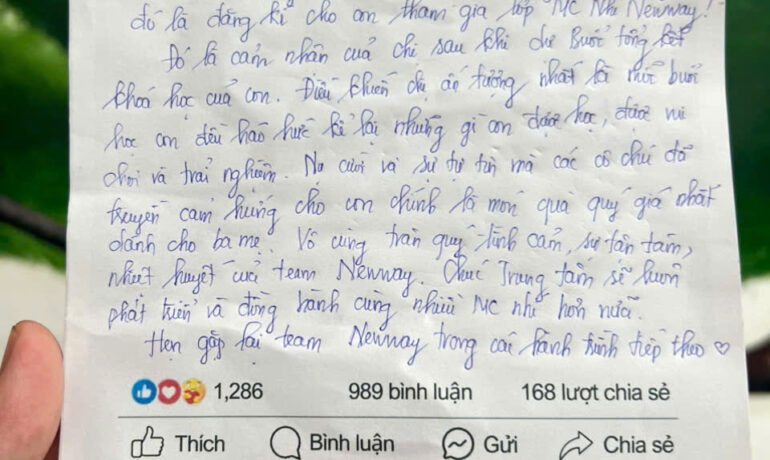 đó là đăng kí cho con tham gia lớp MC Nhí Newway!
Đó là cảm nhận của chị sau khi dự Buổi tổng kết
khoá học của con. Điều khiến chị ấn tượng nhất là mỗi buổi
học con đều háo hức kể lại những gì con được học, được vui
chơi và trải nghiệm. Nụ cười và sự tự tin mà các cô chú đã
truyền cảm hứng cho con chính là món quà quý giá nhất
dành cho ba mẹ. Vô cùng trân quý tình cảm, sự tận tâm,
nhiệt huyết của team Newway. Chúc Trung tâm sẽ luôn
phát triển và đồng hành cùng nhiều MC nhí hơn nữa.
Hẹn gặp lại team Newway trong các hành trình tiếp theo ♡
1,286 989 bình luận 168 lượt chia sẻ
Thích Bình luận Gửi Chia sẻ